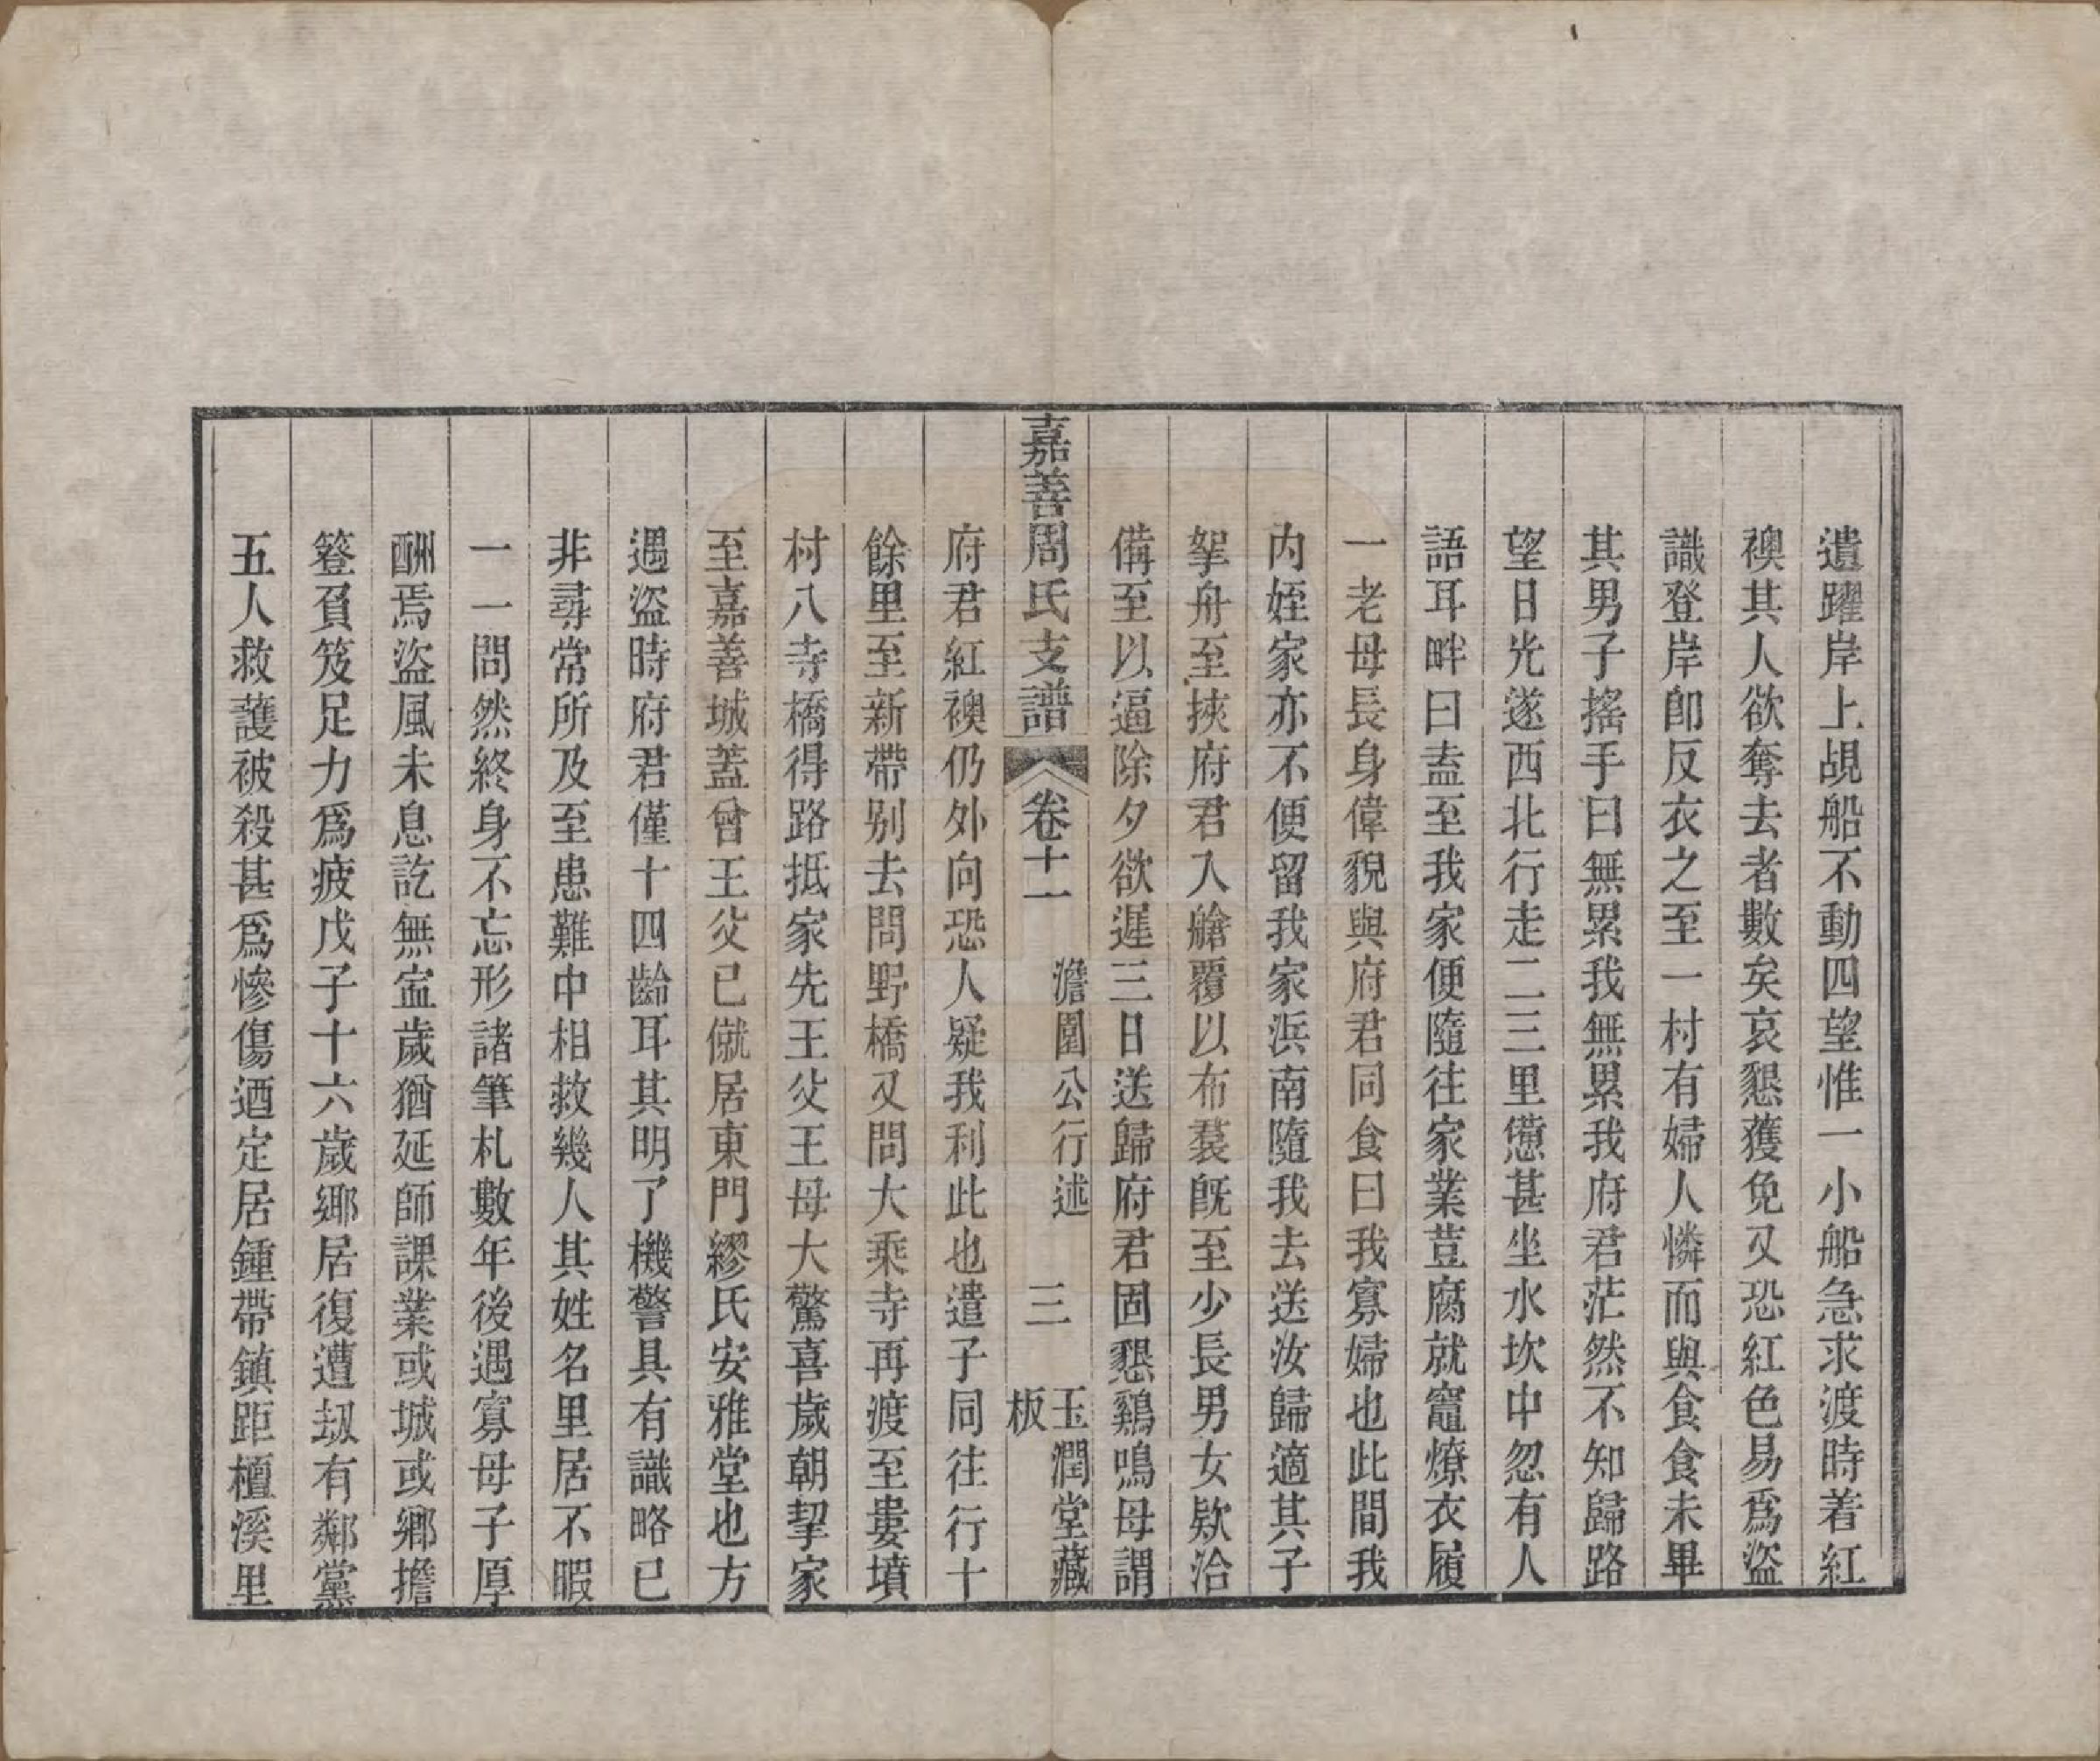 遺躍岸上覘船不動四望惟一小船急求渡時着紅
襖其人欲奪去者數矣哀懇獲免又恐紅色易爲盜
識登岸卽反衣之至一村有婦人憐而與食食未畢
其男子搖手曰無累我無累我府君茫然不知歸路
望日光遂西北行走二三里憊甚坐水坎中忽有人
語耳畔曰盍至我家便隨往家業荳腐就竈燎衣履
一老母長身偉貌與府君同食曰我寡婦也此間我
内姪家亦不便留我家浜南隨我去送汝歸適其子
拏舟至挾府君入艙覆以布裠旣至少長男女欵洽
備至以逼除夕欲遲三日送歸府君固懇鷄鳴母謂
嘉善周氏支譜 卷十一 澹園公行述 三 玉潤堂藏板
府君紅襖仍外向恐人疑我利此也遣子同往行十
餘里至新帶别去問野橋又問大乘寺再渡至婁墳
村八寺橋得路抵家先王父王母大驚喜歲朝挈家
至嘉善城蓋曾王父已僦居東門繆氏安雅堂也方
遇盜時府君僅十四齡耳其明了機警具有識略已
非尋常所及至患難中相救幾人其姓名里居不暇
一一問然終身不忘形諸筆札數年後遇寡母子厚
酬焉盜風未息訖無寍歲猶延師課業或城或鄉擔
簦負笈足力爲疲戊子十六歲鄉居復遭刼有鄰黨
五人救護被殺甚爲慘傷迺定居鍾帶鎮距檀溪里